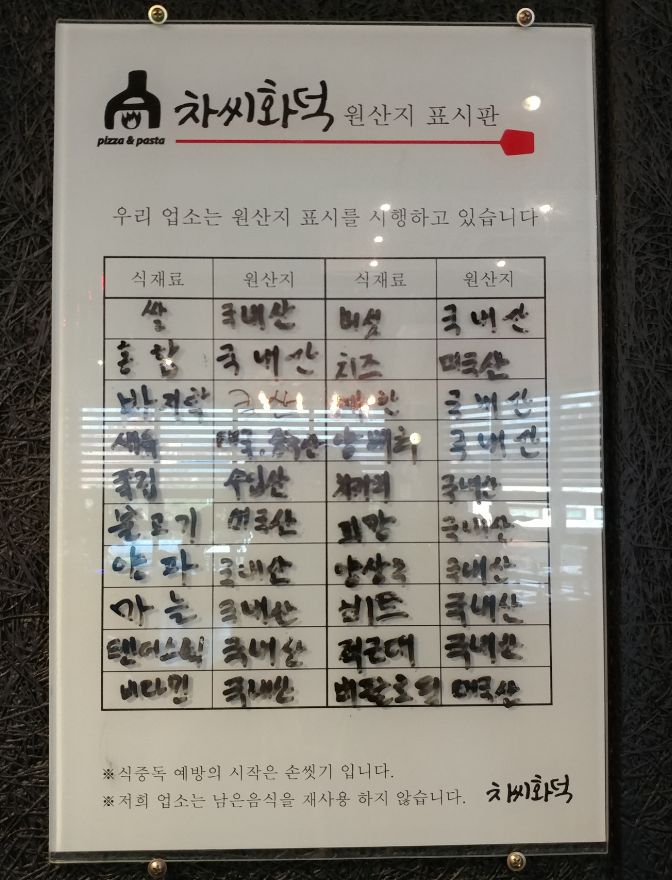 차씨화덕 원산지 표시판
pizza & pasta
우리 업소는 원산지 표시를 시행하고 있습니다
식재료 원산지 식재료 원산지
쌀 국내산 버섯 국내산
홍합 국내산 치즈 미국산
바지락 국내산
새우 태국, 중국산 양배추 국내산
쭈꾸미 수입산 치커리 국내산
불고기 미국산 피망 국내산
양파 국내산 양상추 국내산
마늘 국내산 비트 국내산
텐더스틱 국내산 적근대 국내산
비타민 국내산 미국산
※식중독 예방의 시작은 손씻기 입니다.
※저희 업소는 남은음식을 재사용 하지 않습니다.
차씨화덕